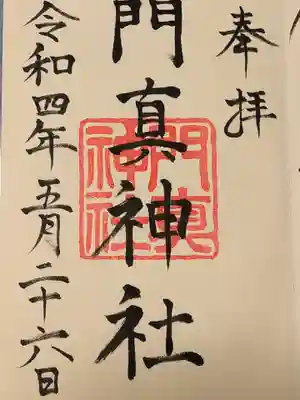 奉拝
門真神社
門真
神社
令和四年五月二十六日